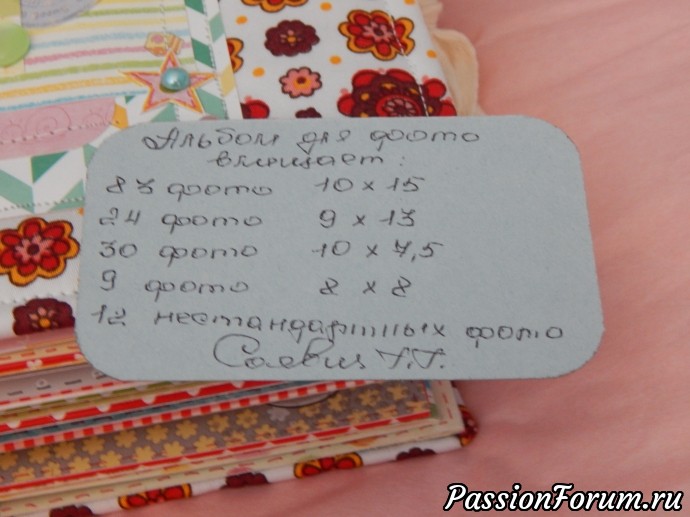 Альбом для фото
вмещает:
83 фото 10 х 15
24 фото 9 х 13
30 фото 10 х 7,5
9 фото 8 х 8
12 нестандартных фото
Г.Г.
PassionForum.ru